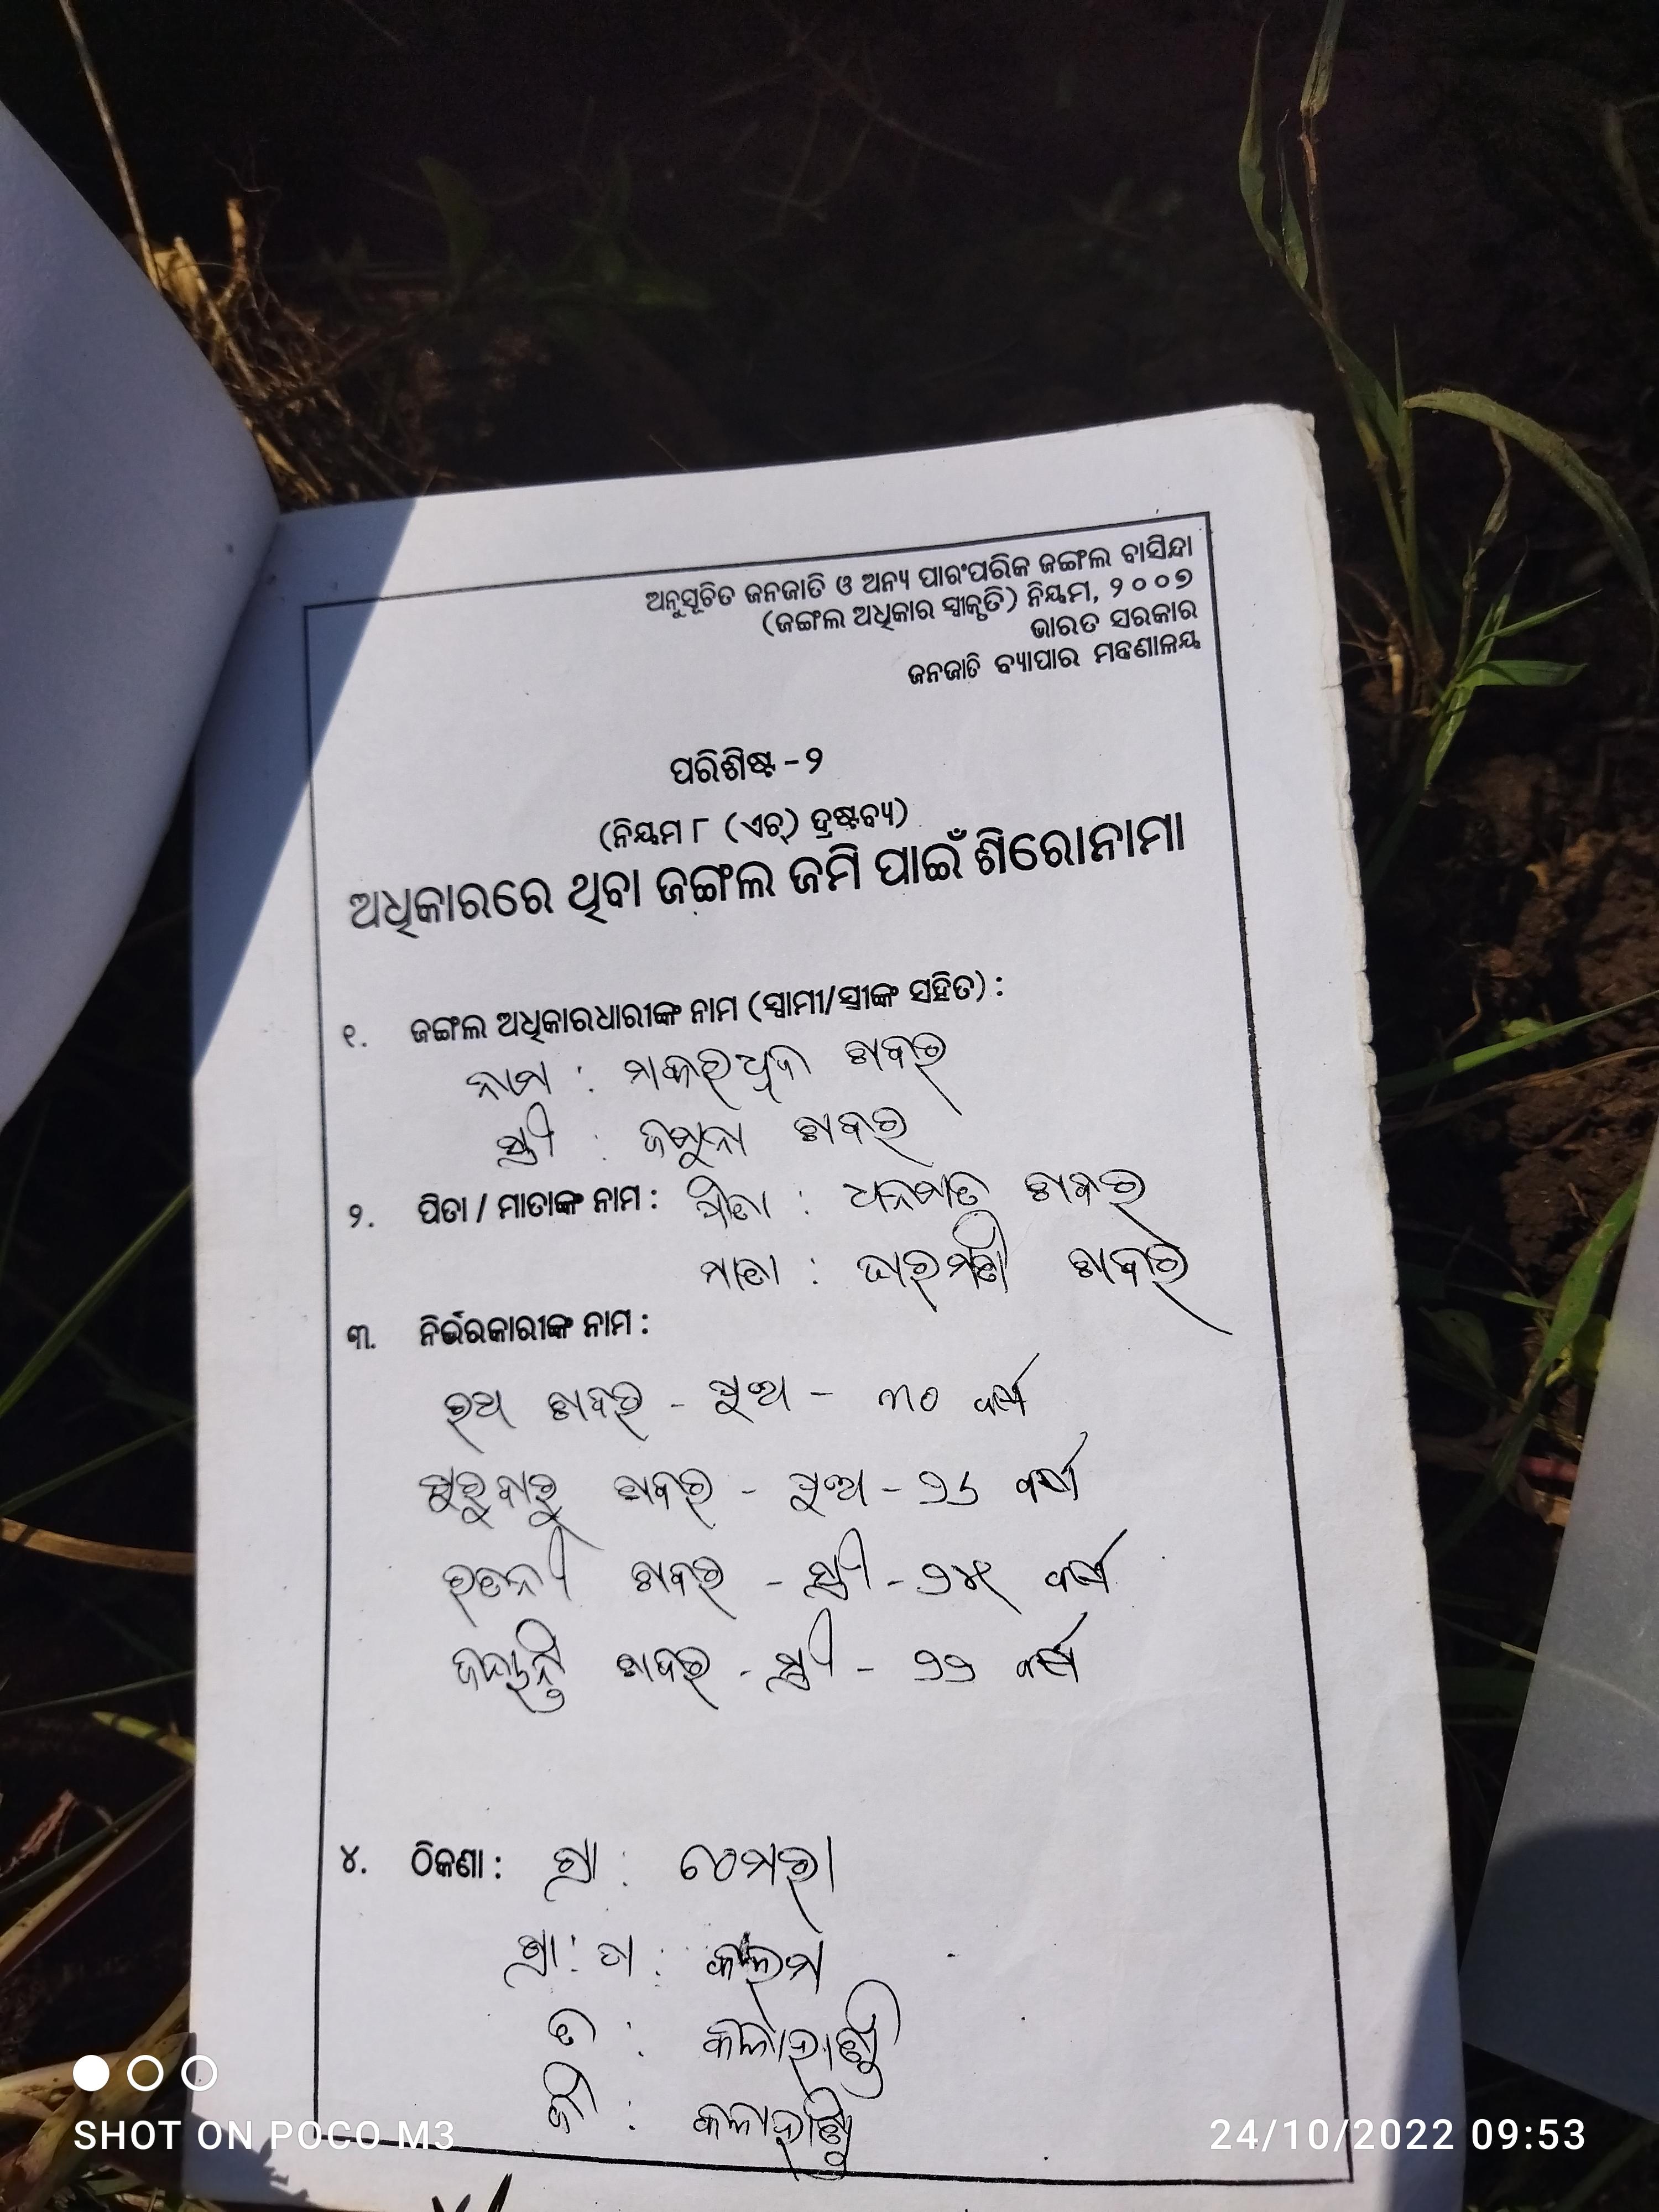 ଅନୁସୂଚିତ ଜନଜାତି ଓ ଅନ୍ୟ ପାରଂପରିକ ଜଙ୍ଗଲ ବାସିନ୍ଦା
(ଜଙ୍ଗଲ ଅଧିକାର ସ୍ୱୀକୃତି) ନିୟମ, ୨୦୦୭
ଭାରତ ସରକାର
ଜନଜାତି ବ୍ୟାପାର ମନ୍ତ୍ରଣାଳୟ
ପରିଶିଷ୍ଟ - ୨
(ନିୟମ ୮ (ଏଚ୍) ଦ୍ରଷ୍ଟବ୍ୟ)
ଅଧିକାରରେ ଥିବା ଜଙ୍ଗଲ ଜମି ପାଇଁ ଶିରୋନାମା
୧. ଜଙ୍ଗଲ ଅଧିକାରଧାରୀଙ୍କ ନାମ (ସ୍ୱାମୀ/ସ୍ତ୍ରୀଙ୍କ ସହିତ) :
ନାମ : ମକରଧ୍ୱଜ ଛାବର
ସ୍ତ୍ରୀ : ଜମୁନା ଛାବର
୨. ପିତା / ମାତାଙ୍କ ନାମ : ପିତା : ଛାବର
ମାତା : ଛାବର
୩. ନିର୍ଭରକାରୀଙ୍କ ନାମ :
ରଥ ଛାବର - ପୁଅ - ୩୦ ବର୍ଷ
ଗୁରୁବାରୁ ଛାବର - ପୁଅ - ୨୬ ବର୍ଷ
ଛାବର - ସ୍ତ୍ରୀ - ୨୪ ବର୍ଷ
ଜୟନ୍ତି ଛାବର - ସ୍ତ୍ରୀ - ୨୨ ବର୍ଷ
୪. ଠିକଣା : ଗ୍ରା : ଟେମରା
ଗ୍ରା: ପ :
ତ : କଳାହାଣ୍ଡି
ଜି : କଳାହାଣ୍ଡି
SHOT ON POCO M3
24/10/2022 09:53